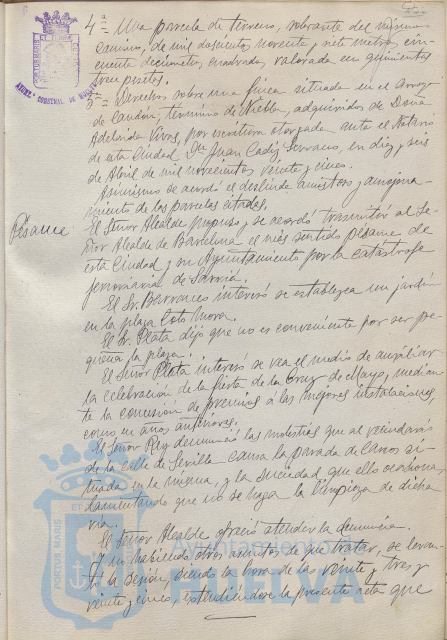 4ª= Una parcela de terreno, sobrante del mismo
camino, de mil doscientos noventa y siete metros, cin-
cuenta decímetros cuadrados, valorada en quinientas
tres pesetas.
5ª= Derechos sobre una finca situada en el arroyo
de Candón, término de Niebla, adquiridos de Doña
Adelaida Vivas, por escritura otorgada ante el Notario
de esta Ciudad, Dn. Juan Cádiz Serrano, en diez y seis
de Abril de mil novecientos veinte y cinco.
Asimismo se acordó el deslinde amistoso y amojona-
miento de las parcelas citadas.
Pésame
El Señor Alcalde propuso y se acordó transmitir al Se-
ñor Alcalde de Barcelona el más sentido pésame de
esta Ciudad y su Ayuntamiento por la catástrofe
ferroviaria de Sarriá.
El Sr. Barranco interesó se establezca un jardín
en la plaza Coto Mora.
El Sr. Plata dijo que no es conveniente por ser pe-
queña la plaza.
El Señor Plata interesó se vea el medio de auxiliar
la celebración de la fiesta de la Cruz de Mayo, median-
te la concesión de premios á las mejores instalaciones,
como en años anteriores.
El Señor Rey denunció las molestias que al vecindario
de la calle de Sevilla causa la parada de carros si-
tuada en la misma, y la suciedad que ello ocasiona,
lamentando que no se haga la limpieza de dicha
vía.
El Señor Alcalde ofreció atender la denuncia.
Y no habiendo otros asuntos de que tratar, se levan-
tó la sesión, siendo la hora de las veinte y tres y
veinte y cinco, extendiéndose la presente acta que
PORTUS MARIS
AYUNTº CONSTNAL DE HUELVA
PORTUS MARIS ET
Ayuntamiento
HUELVA